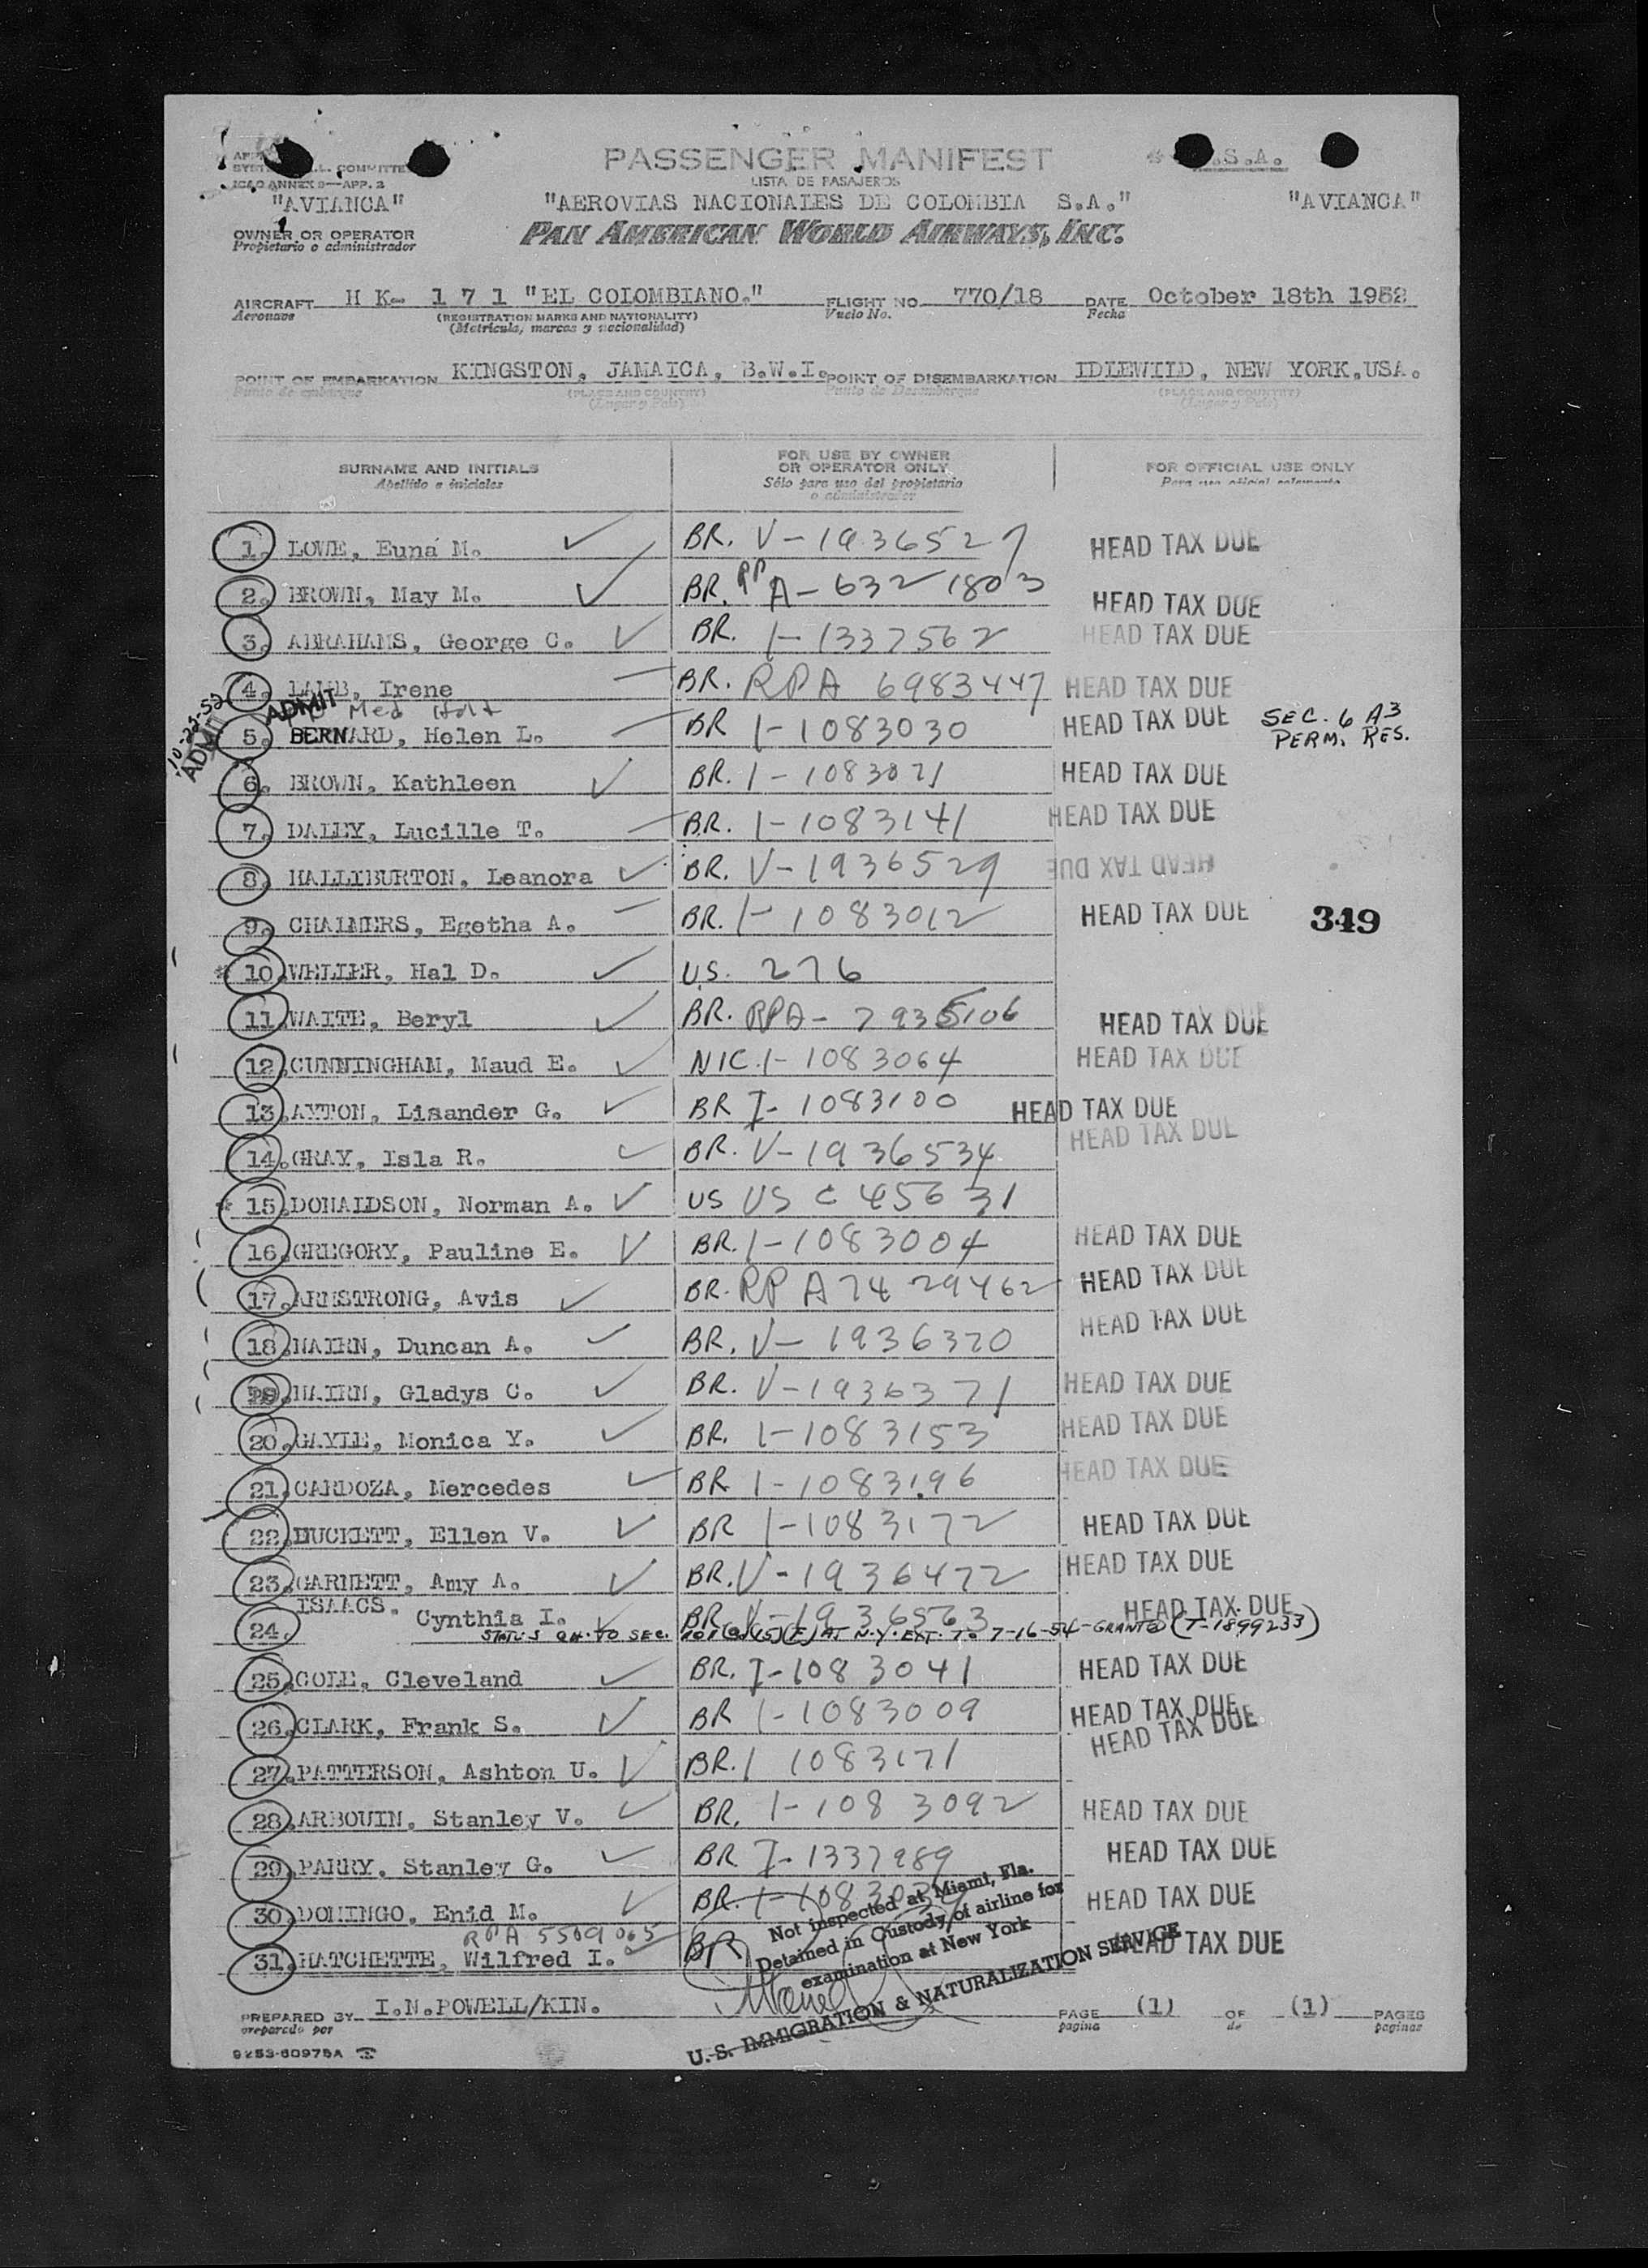 PASSENGER MANIFEST
S.A.
L. COMMITTE
ICAO ANNEX 9—APP. 2
LISTA DE PASAJEROS
"AVIANCA" "AEROVIAS NACIONALES DE COLOMBIA S.A." "AVIANCA"
OWNER OR OPERATOR PAN AMERICAN WORLD AIRWAYS, INC.
Propietario o administrador
AIRCRAFT H K- 1 7 1 "EL COLOMBIANO." FLIGHT NO. 770/18 DATE October 18th 1952
Aeronave (REGISTRATION MARKS AND NATIONALITY) Vuelo No. Fecha
(Matricula, marcas y nacionalidad)
POINT OF EMBARKATION KINGSTON, JAMAICA, B.W.I. POINT OF DISEMBARKATION IDLEWILD, NEW YORK,USA.
Punto de embarque (PLACE AND COUNTRY) Punto de Desembarque (PLACE AND COUNTRY)
(Lugar y País) (Lugar y País)
SURNAME AND INITIALS FOR USE BY OWNER OR OPERATOR ONLY FOR OFFICIAL USE ONLY
Apellido e iniciales Sólo para uso del propietario o administrador Para uso oficial solamente
1. LOWE, Euna M. BR. V-1936527 HEAD TAX DUE
2. BROWN, May M. BR. RP A-6321803 HEAD TAX DUE
3. ABRAHAMS, George C. BR. I-1337562 HEAD TAX DUE
4. LAMB, Irene BR. RPA 6983447 HEAD TAX DUE
10-22-52 ADMIT ADMIT Med Holt
5. BERNARD, Helen L. BR I-1083030 HEAD TAX DUE SEC. 6 A3 PERM. RES.
6. BROWN, Kathleen BR. I-1083021 HEAD TAX DUE
7. DALEY, Lucille T. BR. I-1083141 HEAD TAX DUE
8. HALLIBURTON, Leanora BR. V-1936529 HEAD TAX DUE
9. CHALMERS, Egetha A. BR. I-1083012 HEAD TAX DUE 349
* 10. WELLER, Hal D. US. 276
11. WAITE, Beryl BR. RPA-7935106 HEAD TAX DUE
12. CUNNINGHAM, Maud E. NIC. I-1083064 HEAD TAX DUE
13. AYTON, Lisander G. BR I-1083100 HEAD TAX DUE
14. GRAY, Isla R. BR. V-1936534 HEAD TAX DUE
* 15. DONALDSON, Norman A. US US C 45631
16. GREGORY, Pauline E. BR. I-1083004 HEAD TAX DUE
17. ARMSTRONG, Avis BR. RP A7429462 HEAD TAX DUE
18. NAIRN, Duncan A. BR. V-1936370 HEAD TAX DUE
19. NAIRN, Gladys C. BR. V-1936371 HEAD TAX DUE
20. GAYLE, Monica Y. BR. I-1083153 HEAD TAX DUE
21. CARDOZA, Mercedes BR I-1083196 HEAD TAX DUE
22. DUCKETT, Ellen V. BR I-1083172 HEAD TAX DUE
23. GARNETT, Amy A. BR. V-1936472 HEAD TAX DUE
24. ISAACS. Cynthia I. BR V-1936563 HEAD TAX DUE
STATUS CH. TO SEC. 101(a)(15)(F) AT N.Y. EXT. TO 7-16-54-GRANTED (T-1899233)
25. COLE, Cleveland BR. I-1083041 HEAD TAX DUE
26. CLARK, Frank S. BR I-1083009 HEAD TAX DUE
HEAD TAX DUE
27. PATTERSON, Ashton U. BR. I 1083171
28. ARBOUIN, Stanley V. BR. I-1083092 HEAD TAX DUE
29. PARRY, Stanley G. BR I-1337989 HEAD TAX DUE
30. DOMINGO, Enid M. BR. I-1083034 HEAD TAX DUE
RPA 5509065
31. HATCHETTE, Wilfred I. BR HEAD TAX DUE
Not inspected at Miami, Fla.
Detained in Custody of airline for
examination at New York
U. S. IMMIGRATION & NATURALIZATION SERVICE
PREPARED BY I.N.POWELL/KIN. PAGE (1) OF (1) PAGES
preparado por pagina de paginas
9253-60975A